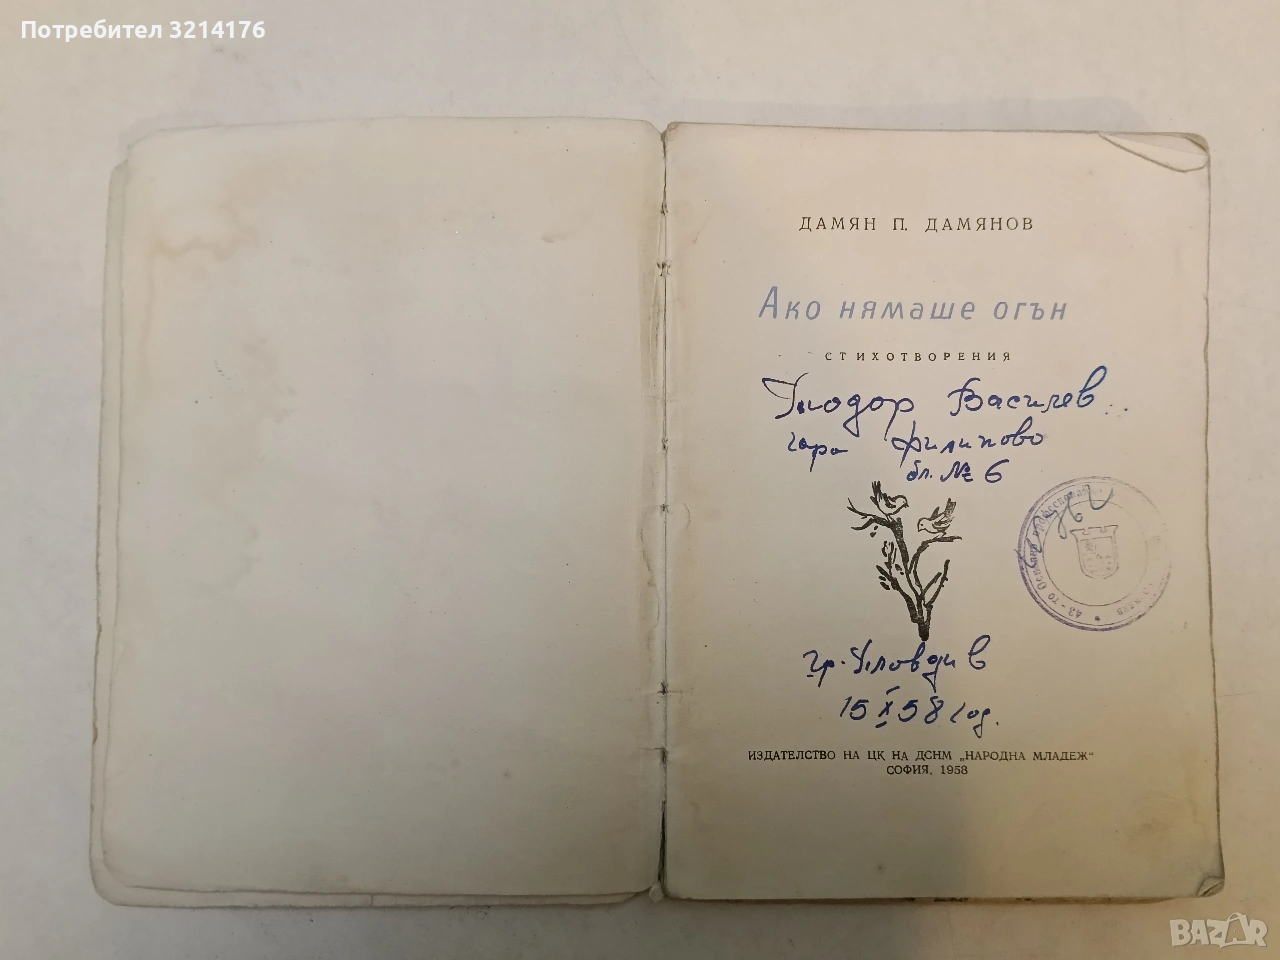 Потребител 3214176
ДАМЯН П. ДАМЯНОВ
Ако нямаше огън
СТИХОТВОРЕНИЯ
Теодор Василев
гара Филипово
бл. № 6
43-то Основно
гр. Пловдив
15 X 58 год.
ИЗДАТЕЛСТВО НА ЦК НА ДСНМ „НАРОДНА МЛАДЕЖ“
СОФИЯ, 1958
BAZAR